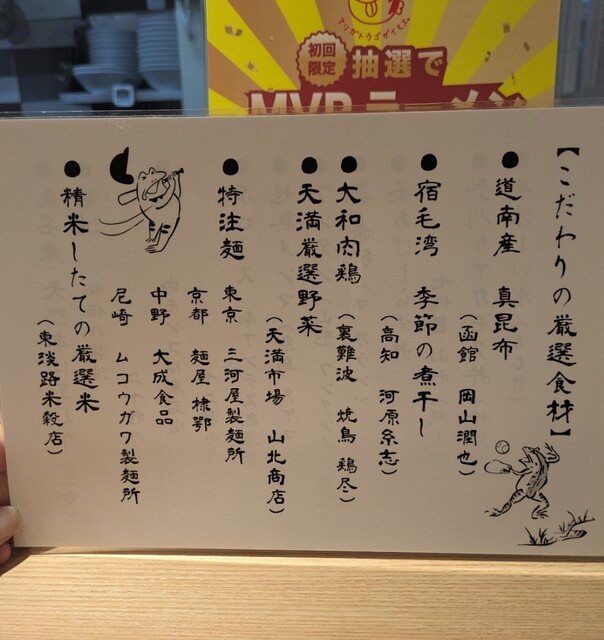 アリガトウゴザイマス
初回
限定
抽選で
MVPラーメン
【こだわりの厳選食材】
●道南産 真昆布
(函館 岡山潤也)
●宿毛湾 季節の煮干し
(高知 河原糸志)
●大和肉鶏 (裏難波 焼鳥 鶏尽)
●天満厳選野菜
(天満市場 山北商店)
●特注麺 東京 三河屋製麺所
京都 麺屋 棣鄂
中野 大成食品
尼崎 ムコウガワ製麺所
●精米したての厳選米
(東淡路米穀店)